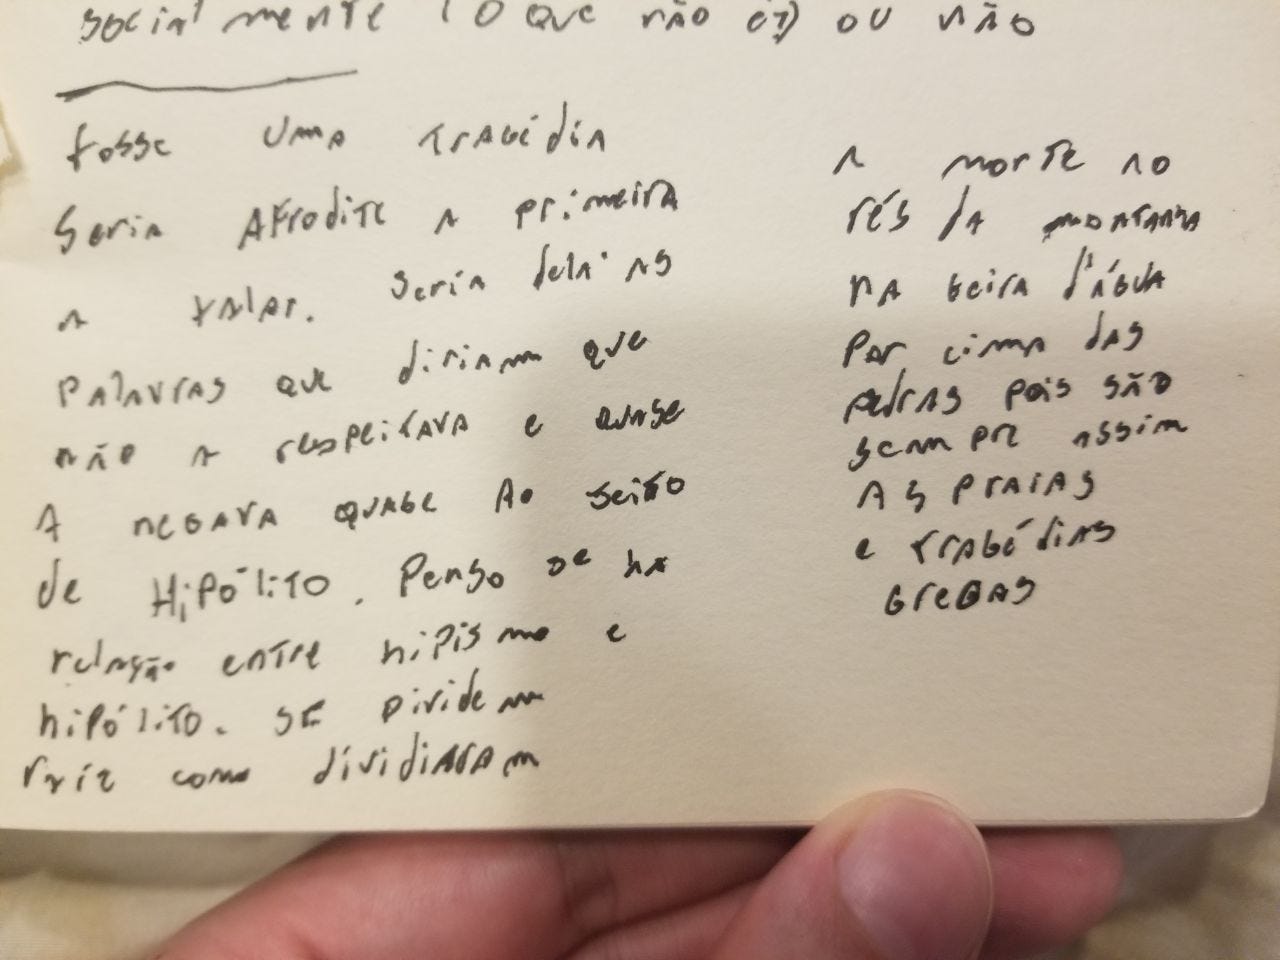 socialmente (o que não é?) ou não
fosse uma tragédia
seria Afrodite a primeira
a falar. seria dela as
palavras que diriam que
não a respeitava e quase
a negava quase ao jeito
de Hipólito. Penso se há
relação entre hipismo e
hipólito. se dividem
raiz como dividiaram
a morte no
rés da montanha
na beira d'água
por cima das
pedras pois são
sempre assim
as praias
e tragédias
gregas